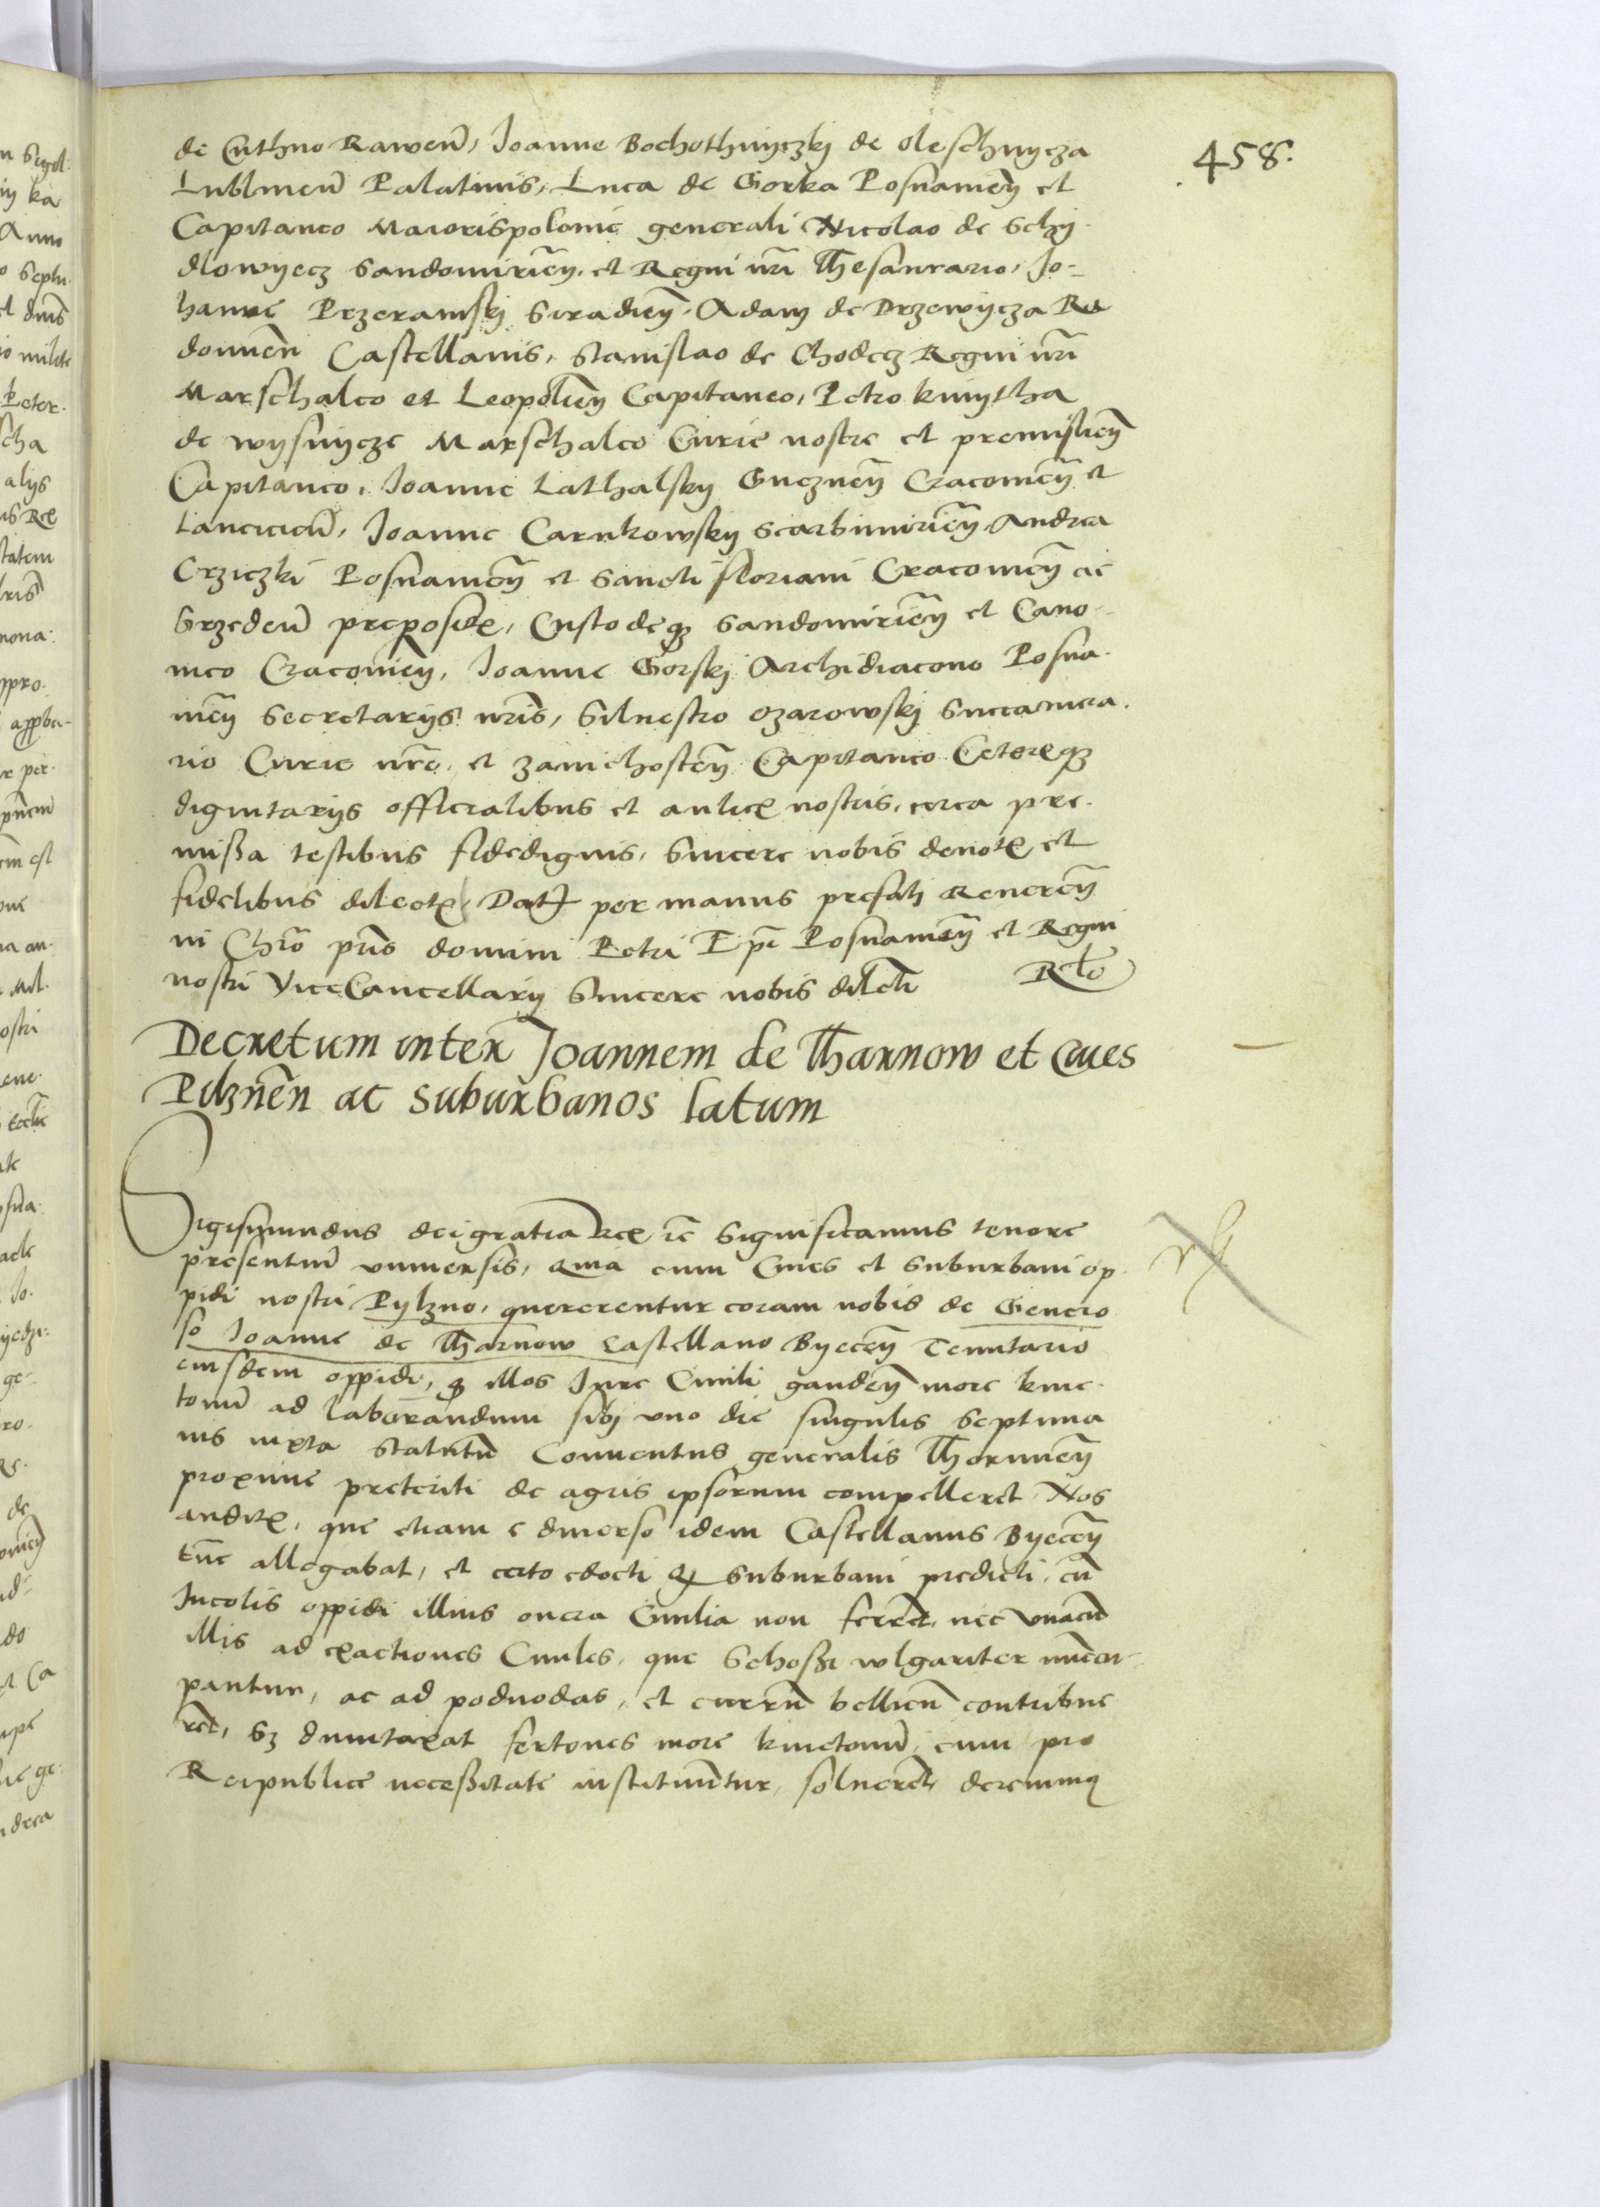 458.
de Cuthno Raween̄, Joanne Bochothnyczkj de oleschnycza
Lublinen̄ Palatinis, Luca de Gorka Posnanien̄ et
Capitaneo Maiorispolonie generali Nicolao de Schy-
dlowyecz Sandomirien̄. et Regni nr̄i Thesaurario, Jo-
hanne Przeramskj Siradien̄. Adam de Drzewycza Ra
domien̄ Castellanis, Stanislao de Chodecz Regni nr̄i
Marschalco et Leopolien̄ Capitaneo, Petro kmytha
de wysnycze Marschalco Curie nostre et premislien̄
Capitaneo, Joanne Lathalskj Gneznen̄ Cracovien̄ et
Lancicien̄, Joanne Carnkowskj Scarbimirien̄ Andrea
Crziczki Posnanien̄ et Sancti floriani Cracovien̄ ac
Srzeden̄ prepositis, Custodeq3 Sandomirien̄ et Cano-
nico Cracovien̄, Joanne Gorskj Archidiacono Posna-
nien̄ Secretarijs nr̄is, Siluestro ozarowskj Succamera-
rio Curie nr̄e, et zawichosten̄ Capitaneo Ceterisq3
dignitarijs officialibus et aulicis nostris, circa pre-
missa testibus fidedignis, Sincere nobis deuotis et
fidelibus dilectis Dat̄ per manus prefati Reueren̄
in Chr̄o pr̄is domini Petri Ep̄i Posnanien̄ et Regni
nostri ViceCancellarij Sincere nobis dilecti Rl̄o
Decretum inter Joannem de Tharnow et Ciues
Pilznēn ac suburbanos latum
Sigismundus dei gratia Rex ic̄ Significamus tenore
presentiū vniuersis, Quia cum Ciues et Suburbani op-
pidi nostri Pylzno, quererentur coram nobis de Genero
so Joanne de Tharnow Castellano Byecen̄ Tenutario
eiusdem oppidi, q3 illos Jure Ciuili gauden̄ more kme-
tonū ad laborandum sibi vno die singulis Septima
nis iuxta Statutū Conuentus generalis Thorunien̄
proxime preteriti de agris ipsorum compelleret. Nos
auditis, que etiam e diuerso idem Castellanus Byecen̄
tūc allegabat, et certo edocti q3 Suburbani predicti, cū
Incolis oppidi illius onera Ciuilia non ferrēt, nec vnacū
illis ad exactiones Ciuiles, que Schossi wlgariter nūcu-
pantur, ac ad poduodas, et currū bellicū contribue
rēt, S3 duntaxat fertones more kmetonū, cum pro
Reipublice necessitate instituūtur, soluerēt, decreuimq